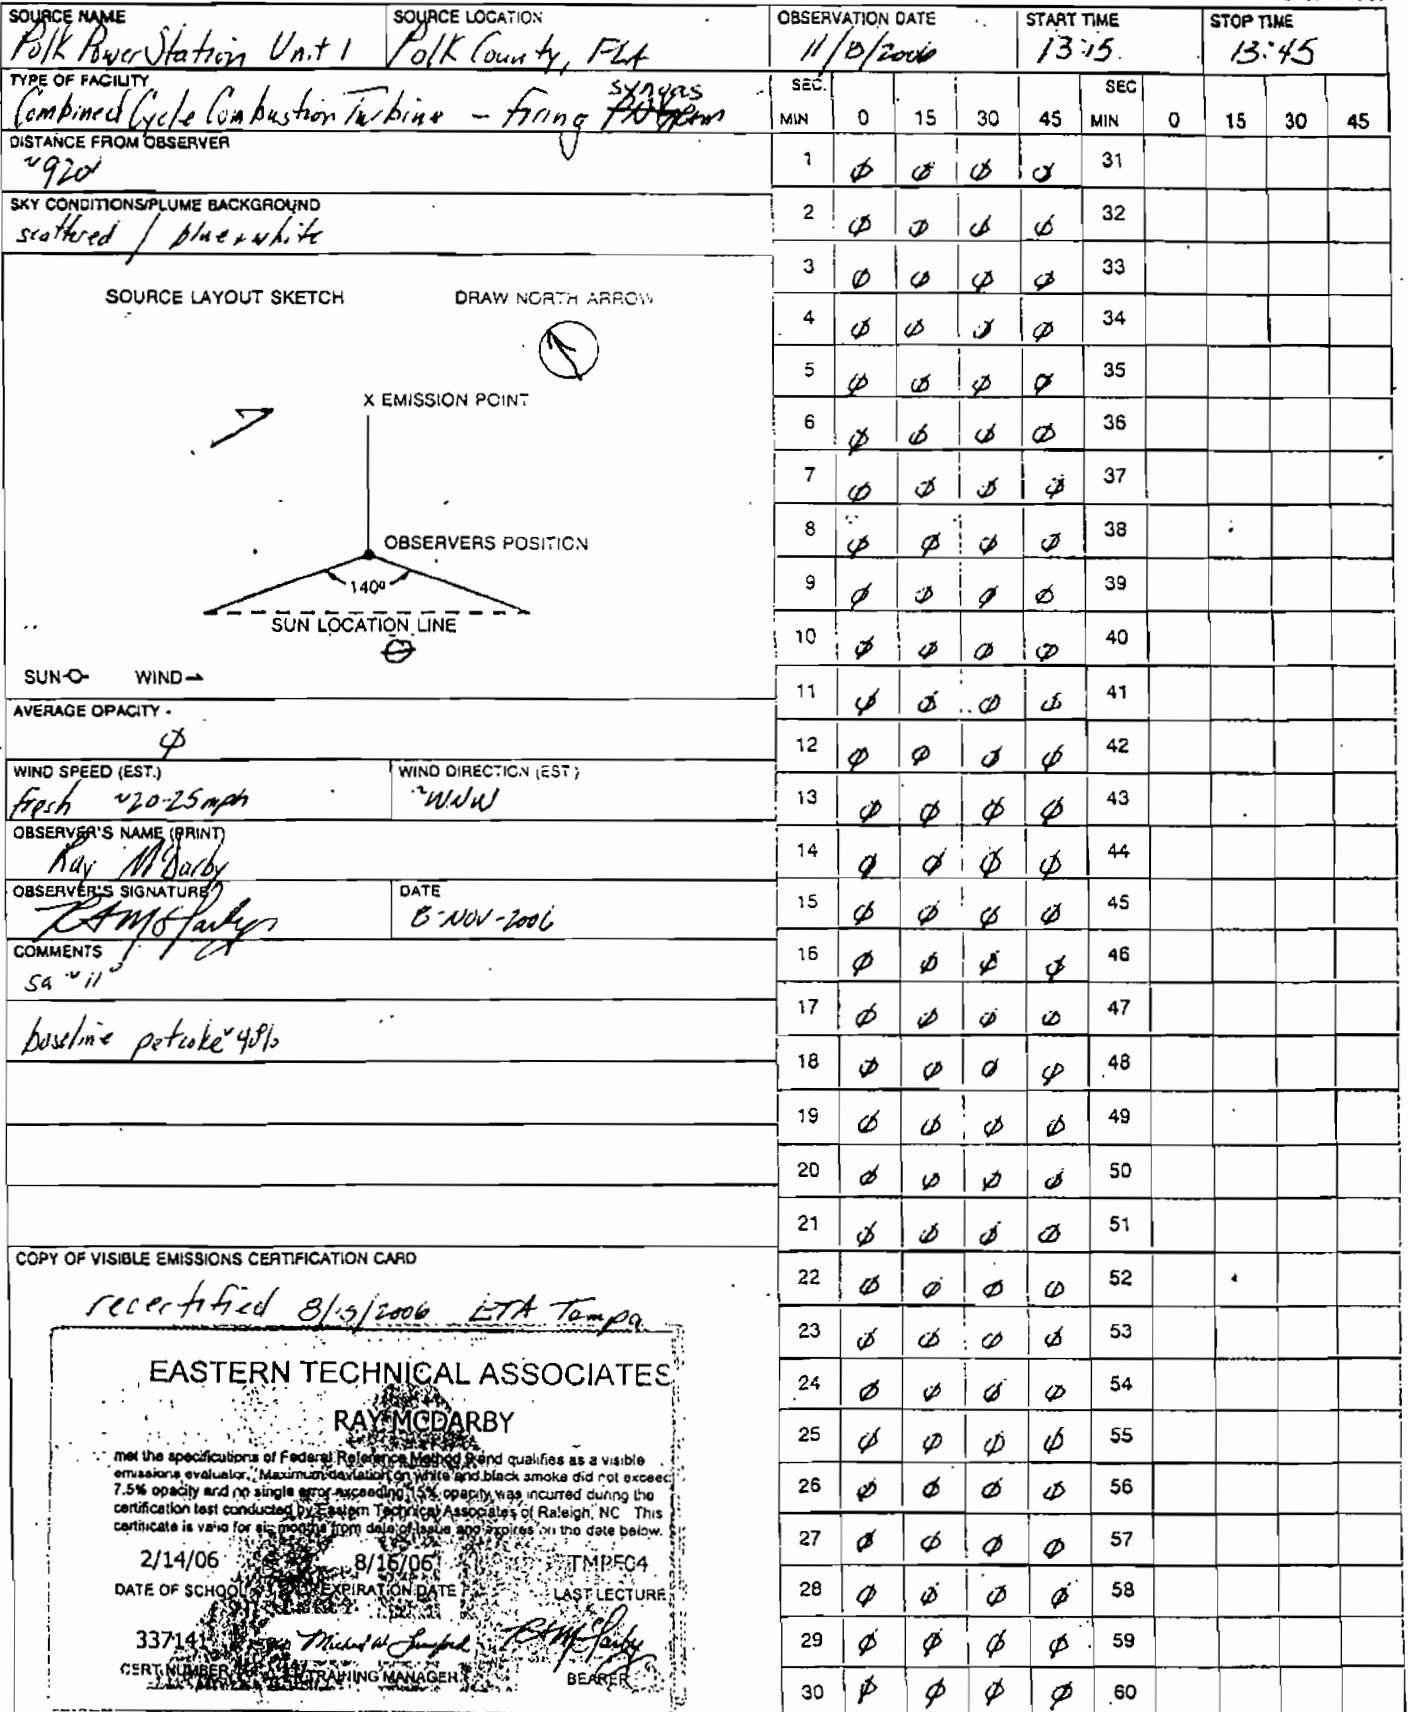 SOURCE NAME
Polk Power Station Unit 1
SOURCE LOCATION
Polk County, FLA
OBSERVATION DATE
11/8/2006
START TIME
13:15
STOP TIME
13:45
TYPE OF FACILITY
Combined Cycle Combustion Turbine - firing syngas
DISTANCE FROM OBSERVER
~920'
SKY CONDITIONS/PLUME BACKGROUND
scattered / blue + white
SOURCE LAYOUT SKETCH
DRAW NORTH ARROW
X EMISSION POINT
OBSERVERS POSITION
140º
SUN LOCATION LINE
SUN
WIND
AVERAGE OPACITY
Ø
WIND SPEED (EST.)
fresh ~20-25 mph
WIND DIRECTION (EST)
~WNW
OBSERVER'S NAME (PRINT)
Ray McDarby
OBSERVER'S SIGNATURE
DATE
8-NOV-2006
COMMENTS
sa ~ 11"
baseline petcoke ~
COPY OF VISIBLE EMISSIONS CERTIFICATION CARD
recertified 2006 ETA Tampa
EASTERN TECHNICAL ASSOCIATES
RAY MCDARBY
met the specifications of Federal Reference Method 9 and qualifies as a visible
emissions evaluator. Maximum deviation on white and black smoke did not exceed
7.5% opacity and no single error exceeding 15% opacity was incurred during the
certification test conducted by Eastern Technical Associates of Raleigh, NC This
certificate is valid for six months from date of issue and expires on the date below.
2/14/06 8/16/06
DATE OF SCHOOL EXPIRATION DATE LAST LECTURE
337141
CERT NUMBER TRAINING MANAGER BEARER
SEC. SEC
MIN 0 15 30 45 MIN 0 15 30 45
1 Ø Ø Ø Ø 31
2 Ø Ø Ø Ø 32
3 Ø Ø Ø Ø 33
4 Ø Ø Ø Ø 34
5 Ø Ø Ø Ø 35
6 Ø Ø Ø Ø 36
7 Ø Ø Ø Ø 37
8 Ø Ø Ø Ø 38
9 Ø Ø Ø Ø 39
10 Ø Ø Ø Ø 40
11 Ø Ø Ø Ø 41
12 Ø Ø Ø Ø 42
13 Ø Ø Ø Ø 43
14 Ø Ø Ø Ø 44
15 Ø Ø Ø Ø 45
16 Ø Ø Ø Ø 46
17 Ø Ø Ø Ø 47
18 Ø Ø Ø Ø 48
19 Ø Ø Ø Ø 49
20 Ø Ø Ø Ø 50
21 Ø Ø Ø Ø 51
22 Ø Ø Ø Ø 52
23 Ø Ø Ø Ø 53
24 Ø Ø Ø Ø 54
25 Ø Ø Ø Ø 55
26 Ø Ø Ø Ø 56
27 Ø Ø Ø Ø 57
28 Ø Ø Ø Ø 58
29 Ø Ø Ø Ø 59
30 Ø Ø Ø Ø 60